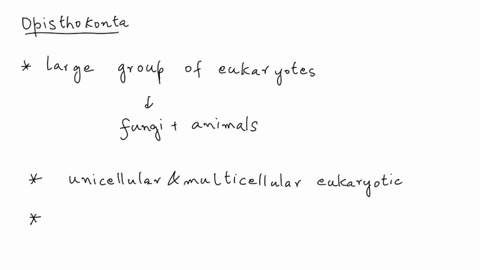 Opisthokonta
* large group of eukaryotes
↓
fungi + animals
* unicellular & multicellular eukaryotic
*